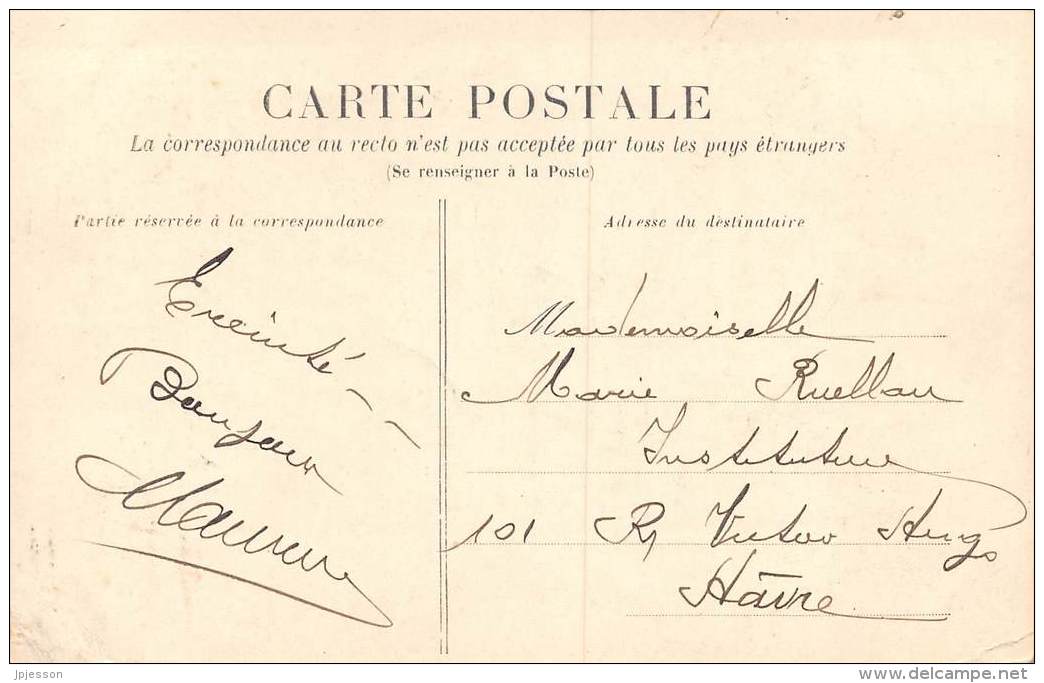 CARTE POSTALE
La correspondance au recto n'est pas acceptée par tous les pays étrangers
(Se renseigner à la Poste)
Partie réservée à la correspondance
Ereinté - -
Bonjour
Adresse du destinataire
Mademoiselle
Marie Ruellan
Institutrice
101 R Victor Hugo
Hâvre
jpjesson
delcampe.net